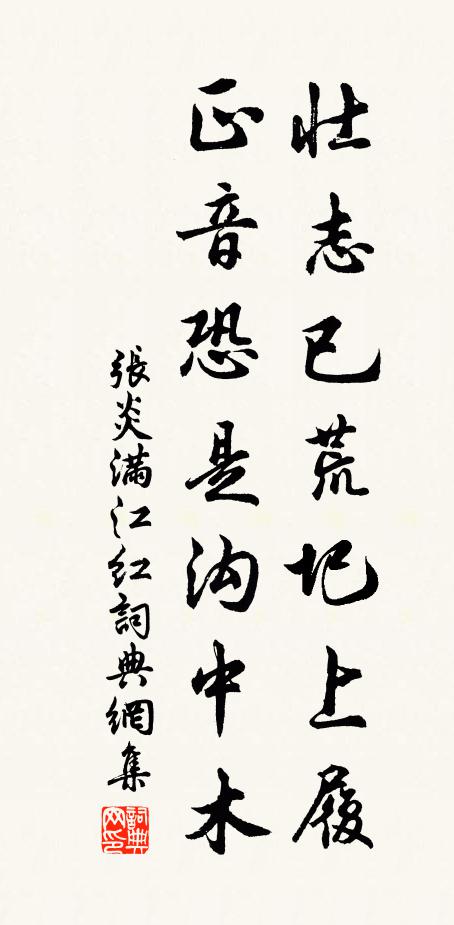 壮志已荒圯上履
正音恐是沟中木
張炎滿江红詞典網集
詞典网印